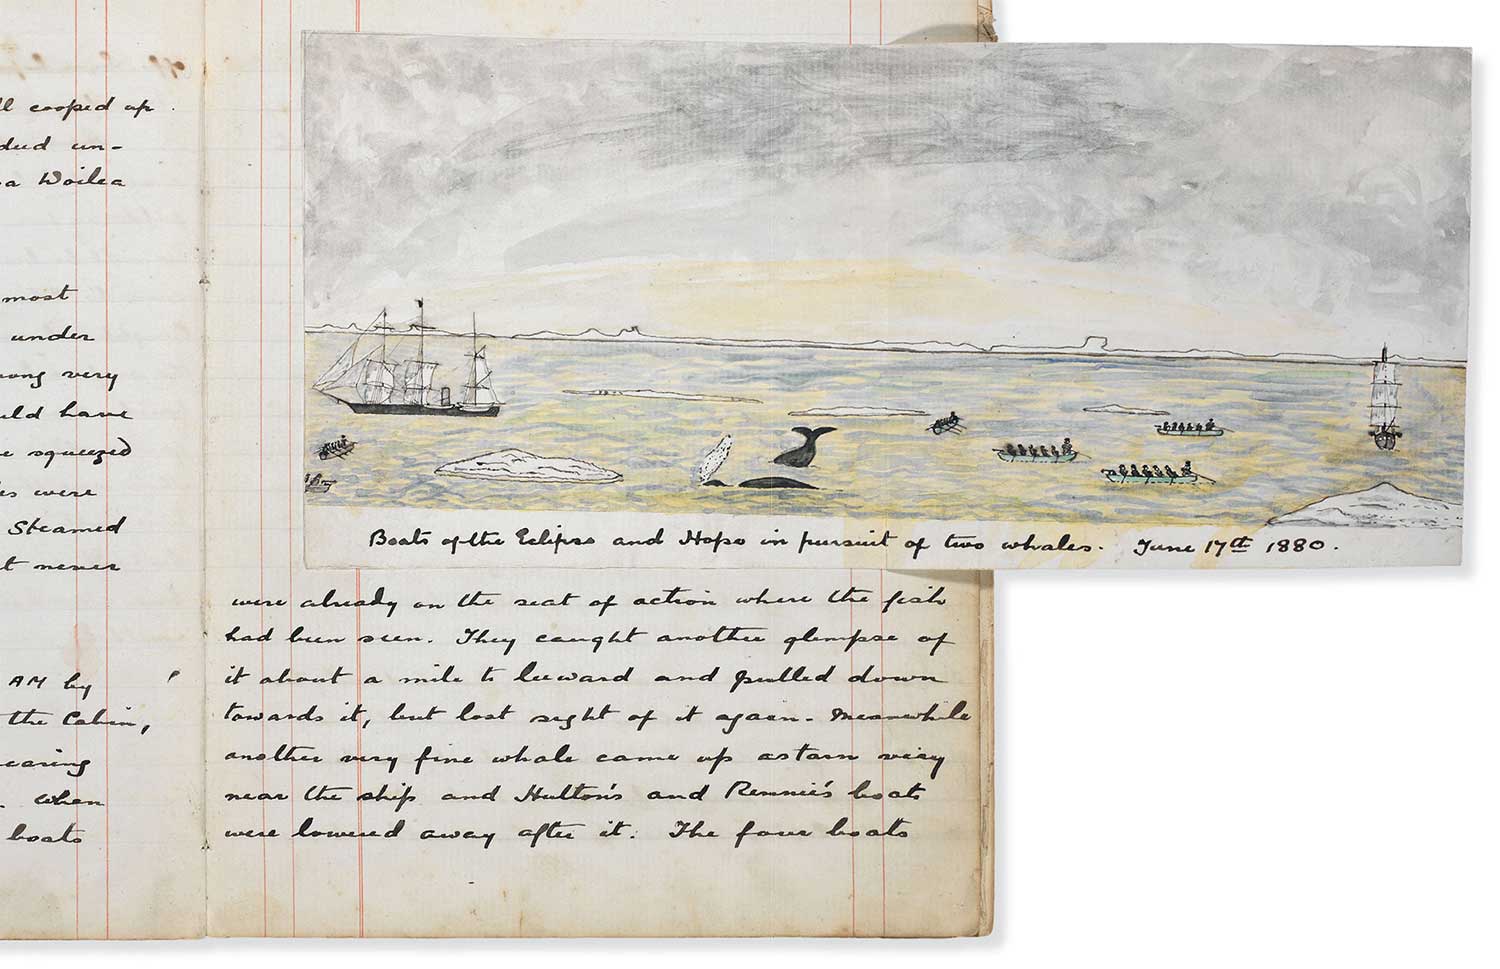 cooped up.
un-
a Woilea
most
under
very
have
squeezed
were
Steamed
never
AM by
the Cabin,
When
boats
Boats of the Eclipse and Hope in pursuit of two whales. June 17th 1880.
were already on the seat of action where the fish
had been seen. They caught another glimpse of
it about a mile to leeward and pulled down
towards it, but lost sight of it again. Meanwhile
another very fine whale came up astarn very
near the ship and Hulton's and Rennie's boats
were lowered away after it. The four boats